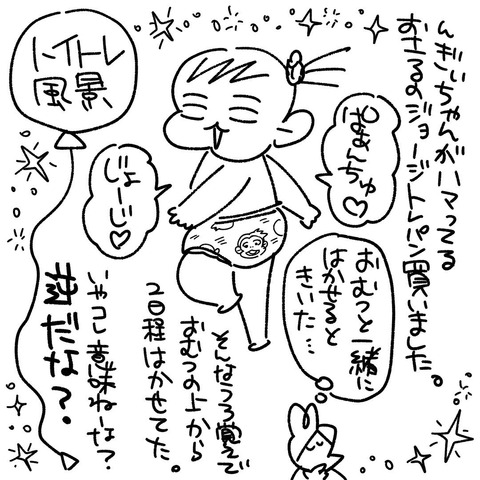 んぎぃちゃんがハマってる
おさるのジョージトレパン買いました。
トイトレ
風景
ぱぁんちゅ♡
じょーじ♡
おむつと一緒に
はかせると
きいた…
そんなうろ覚えで
おむつの上から
2日程はかせてた。
いやコレ意味ねーな?
逆だな?